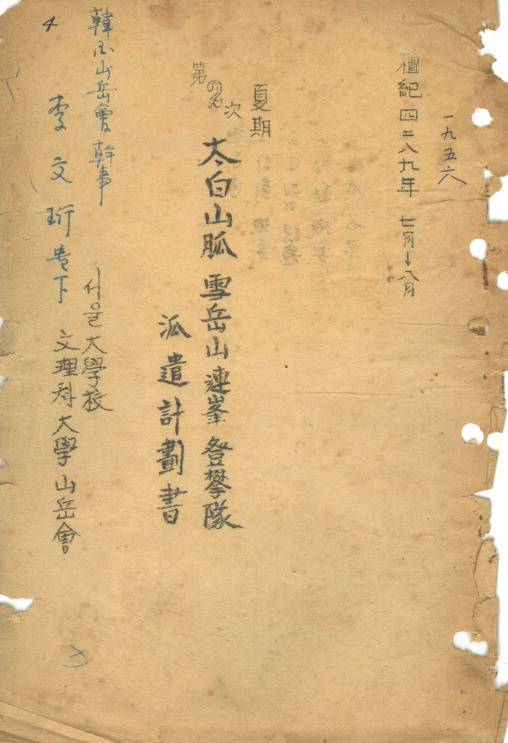 一九五六
檀紀 四二八九年 七月↓八月
夏期
第2次
太白山脈 雪岳山 連峯 登攀隊
派遣計劃書
서울大學校
文理科大學山岳會
韓國山岳會 幹事
李文珩 貴下